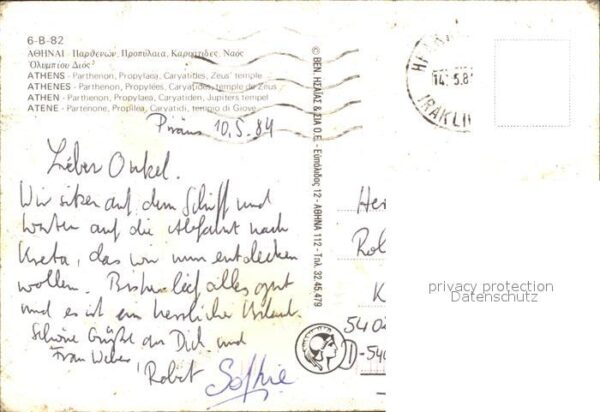 6-B-82
ΑΘΗΝΑΙ - Παρθενών, Προπύλαια, Καρυάτιδες, Ναός
Ὀλυμπίου Διός
ATHENS - Parthenon, Propylaea, Caryatides, Zeus' temple
ATHENES - Parthenon, Propylées, Caryatides, temple de Zeus
ATHEN - Parthenon, Propylaea, Caryatiden, Jupiters tempel
ATENE - Partenone, Propilea, Caryatidi, tempio di Giove
Piräus 10.5.84
Lieber Onkel.
Wir sitzen auf dem Schiff und
warten auf die Abfahrt nach
Kreta, das wir nun entdecken
wollen. Bisher lief alles gut
und es ist ein herrlicher Urlaub.
Schöne Grüße an Dich und
Frau Weber
Robert Sophie
© ΒΕΝ. ΗΣΑΪΑΣ & ΣΙΑ Ο.Ε. - Εὐπόλιδος 12 - ΑΘΗΝΑ 112 - Τηλ. 32.45.479
14.5.8
IRAKLI
Her
Rob
K
540
D-540
privacy protection
Datenschutz